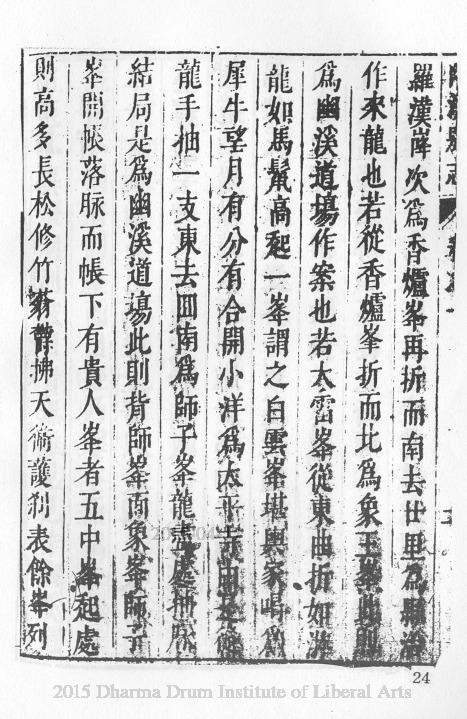 羅漢峰次為香爐峯再折而南去廿里為縣治
作來龍也若從香爐峯折而北為象王峯此則
為幽溪道塲作案也若大雷峯從東曲折如游
龍如馬鬣高起一峯謂之白雲峯堪輿家喝為
犀牛望月有分有合開小洋為太平寺由是
龍手抽一支東去回南為師子峯龍盡處抽脉
結局是為幽溪道塲此則背師峯面象峯師子
峯開帳落脉而帳下有貴人峯者五中峯起處
則高多長松修竹蓊欝拂天衛護剎表餘峯列
24
2015 Dharma Drum Institute of Liberal Arts